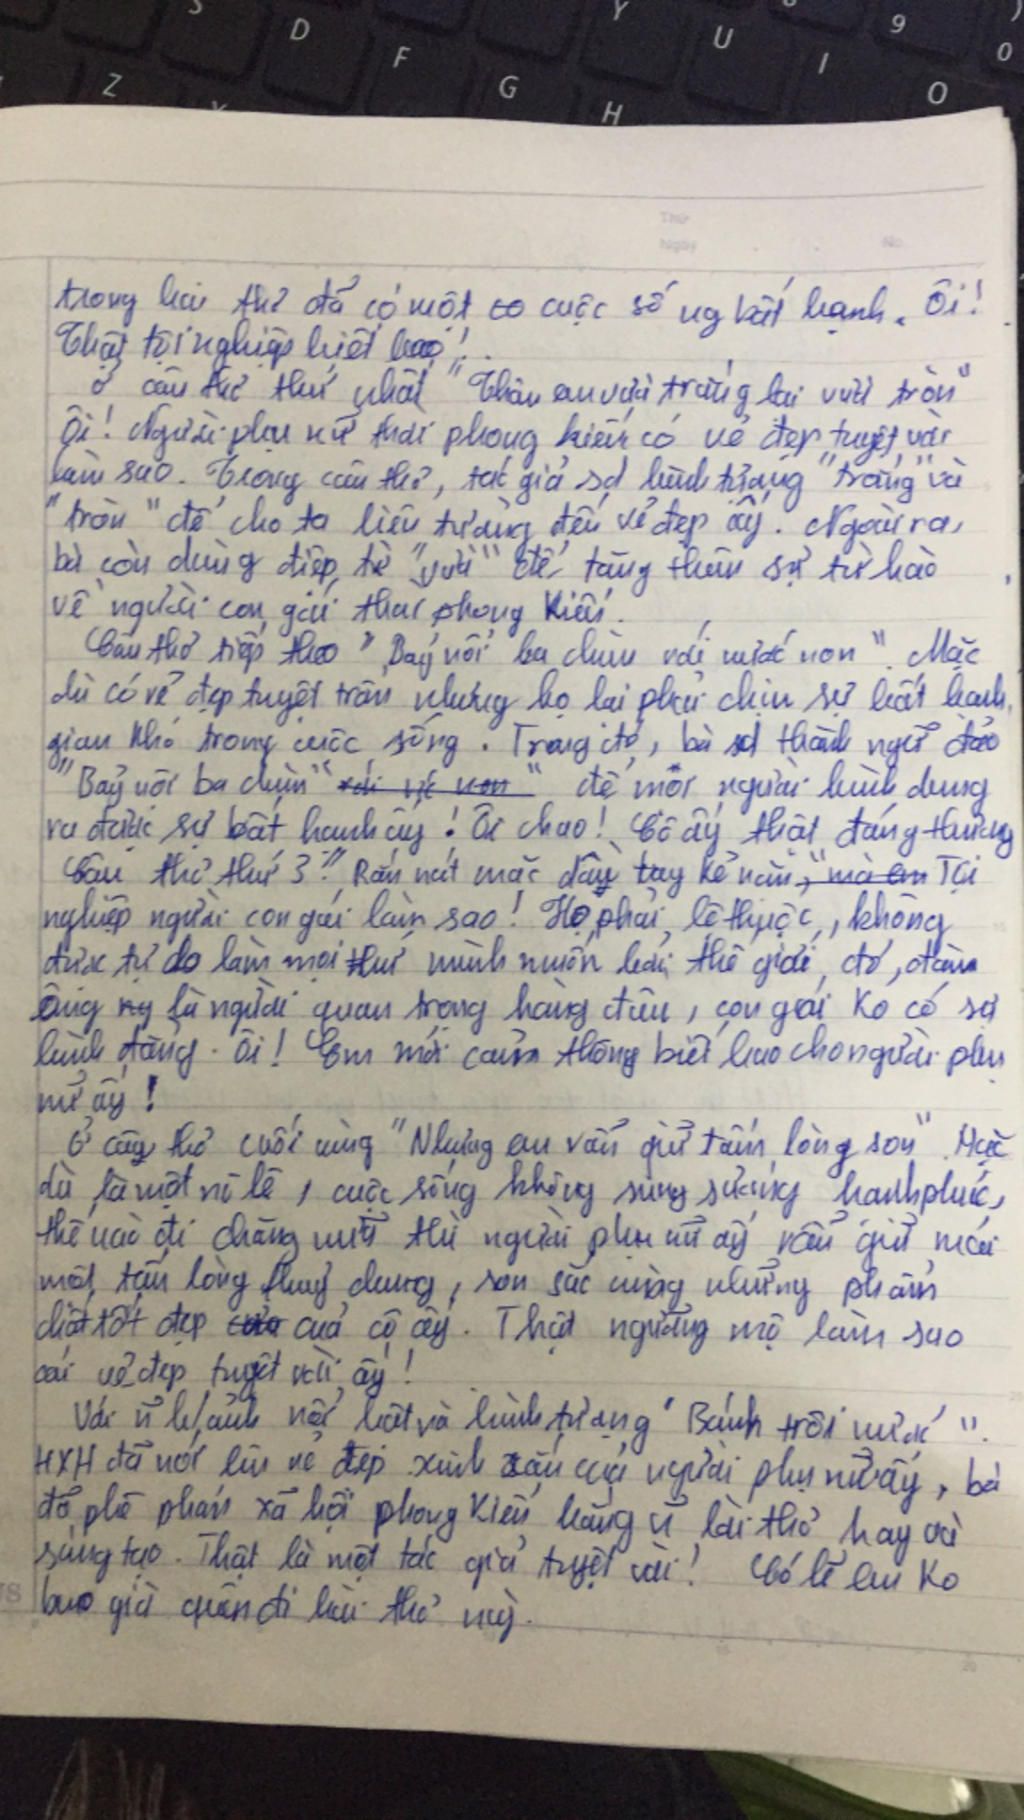 S D F Y U 8 9 0
Z G H I O
Thứ
Ngày No.
trong bài thơ đã có một co cuộc số ng bất hạnh. Ôi!
Thật tội nghiệp biết bao!
ở câu thơ thứ nhất "Thân em vừa trắng lại vừa tròn"
Ôi! Người phụ nữ thời phong kiến có vẻ đẹp tuyệt vời
làm sao. Trong câu thơ, tác giả sd hình tượng "trắng" và
"tròn" để cho ta liên tưởng đến vẻ đẹp ấy. Ngoài ra,
bà còn dùng điệp từ "vừa" để tăng thêm sự tự hào
về người con gái thời phong kiến.
Câu thơ tiếp theo "Bảy nổi ba chìm với nước non". Mặc
dù có vẻ đẹp tuyệt trần nhưng họ lại phải chịu sự bất hạnh,
gian khó trong cuộc sống. Trong đó, bà sd thành ngữ đảo
"Bảy nổi ba chìm" " để mọi người hình dung
ra được sự bất hạnh ấy! Ôi chao! Cô ấy thật đáng thương
Câu thơ thứ 3 " Rắn nát mặc dầu tay kẻ nặn", mà em Tội
nghiệp người con gái làm sao! Họ phải lệ thuộc, không
được tự do làm mọi thứ mình muốn bởi thế giới đó, đàn
ông là người quan trọng hàng đầu, con gái ko có sự
bình đẳng. Ôi! Em mới cảm thông biết bao cho người phụ
nữ ấy!
Ở câu thơ cuối cùng "Nhưng em vẫn giữ tấm lòng son". Mặc
dù là một nô lệ, cuộc sống không sung sướng hạnh phúc,
thế nào đi chăng nữa thì người phụ nữ ấy vẫn giữ mãi
một tấm lòng thuỷ chung, son sắc cùng những phẩm
chất tốt đẹp của cô ấy. Thật ngưỡng mộ làm sao
cái vẻ đẹp tuyệt vời ấy!
Với n h/ảnh nổi bật và hình tượng "Bánh trôi nước".
HXH đã nói lên vẻ đẹp xinh xắn của người phụ nữ ấy, bà
đã phê phán xã hội phong kiến bằng n lời thơ hay và
sáng tạo. Thật là một tác giả tuyệt vời! Có lẽ em ko
bao giờ quên đi bài thơ này.